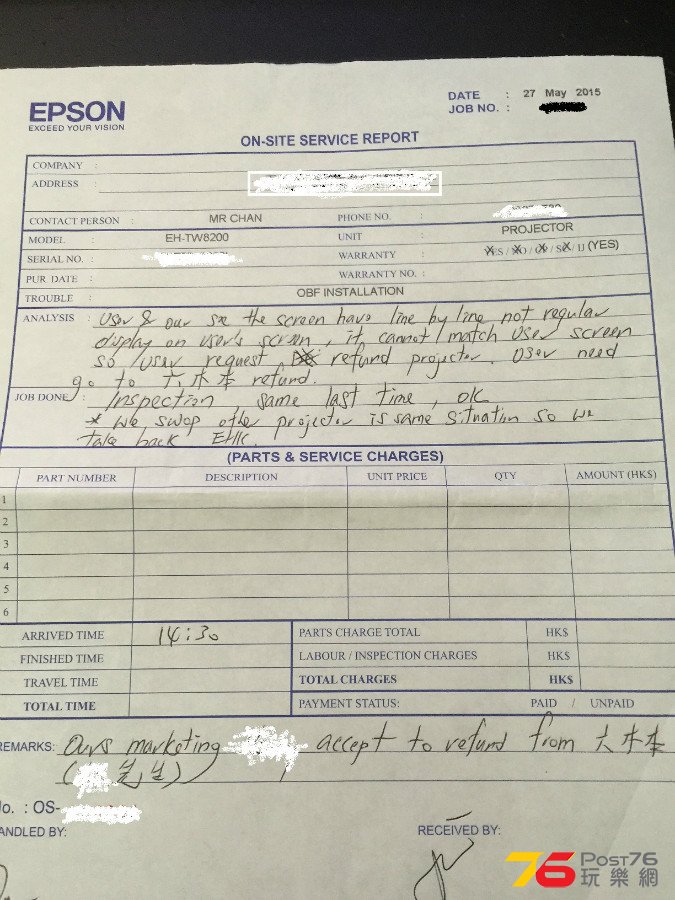 EPSON
EXCEED YOUR VISION
DATE : 27 May 2015
JOB NO. :
ON-SITE SERVICE REPORT
COMPANY :
ADDRESS :
CONTACT PERSON : MR CHAN PHONE NO. :
MODEL : EH-TW8200 UNIT : PROJECTOR
SERIAL NO. : WARRANTY : YES / NO / OP / SX / IJ (YES)
PUR DATE : WARRANTY NO. :
TROUBLE : OBF INSTALLATION
ANALYSIS : User & our see the screen have line by line not regular
display on user's screen, it cannot match user screen
so user request refund projector. User need
go to 六木本 refund.
JOB DONE : Inspection, same last time, OK
* we swop other projector is same situation so we
take back EHK.
(PARTS & SERVICE CHARGES)
PART NUMBER DESCRIPTION UNIT PRICE QTY AMOUNT (HK$)
1
2
3
4
5
6
ARRIVED TIME 14:30 PARTS CHARGE TOTAL HK$
FINISHED TIME LABOUR / INSPECTION CHARGES HK$
TRAVEL TIME TOTAL CHARGES HK$
TOTAL TIME PAYMENT STATUS: PAID / UNPAID
REMARKS: Ours marketing accept to refund from 六木本
( 先生)
No. : OS-
HANDLED BY: RECEIVED BY:
76 Post76
玩樂網